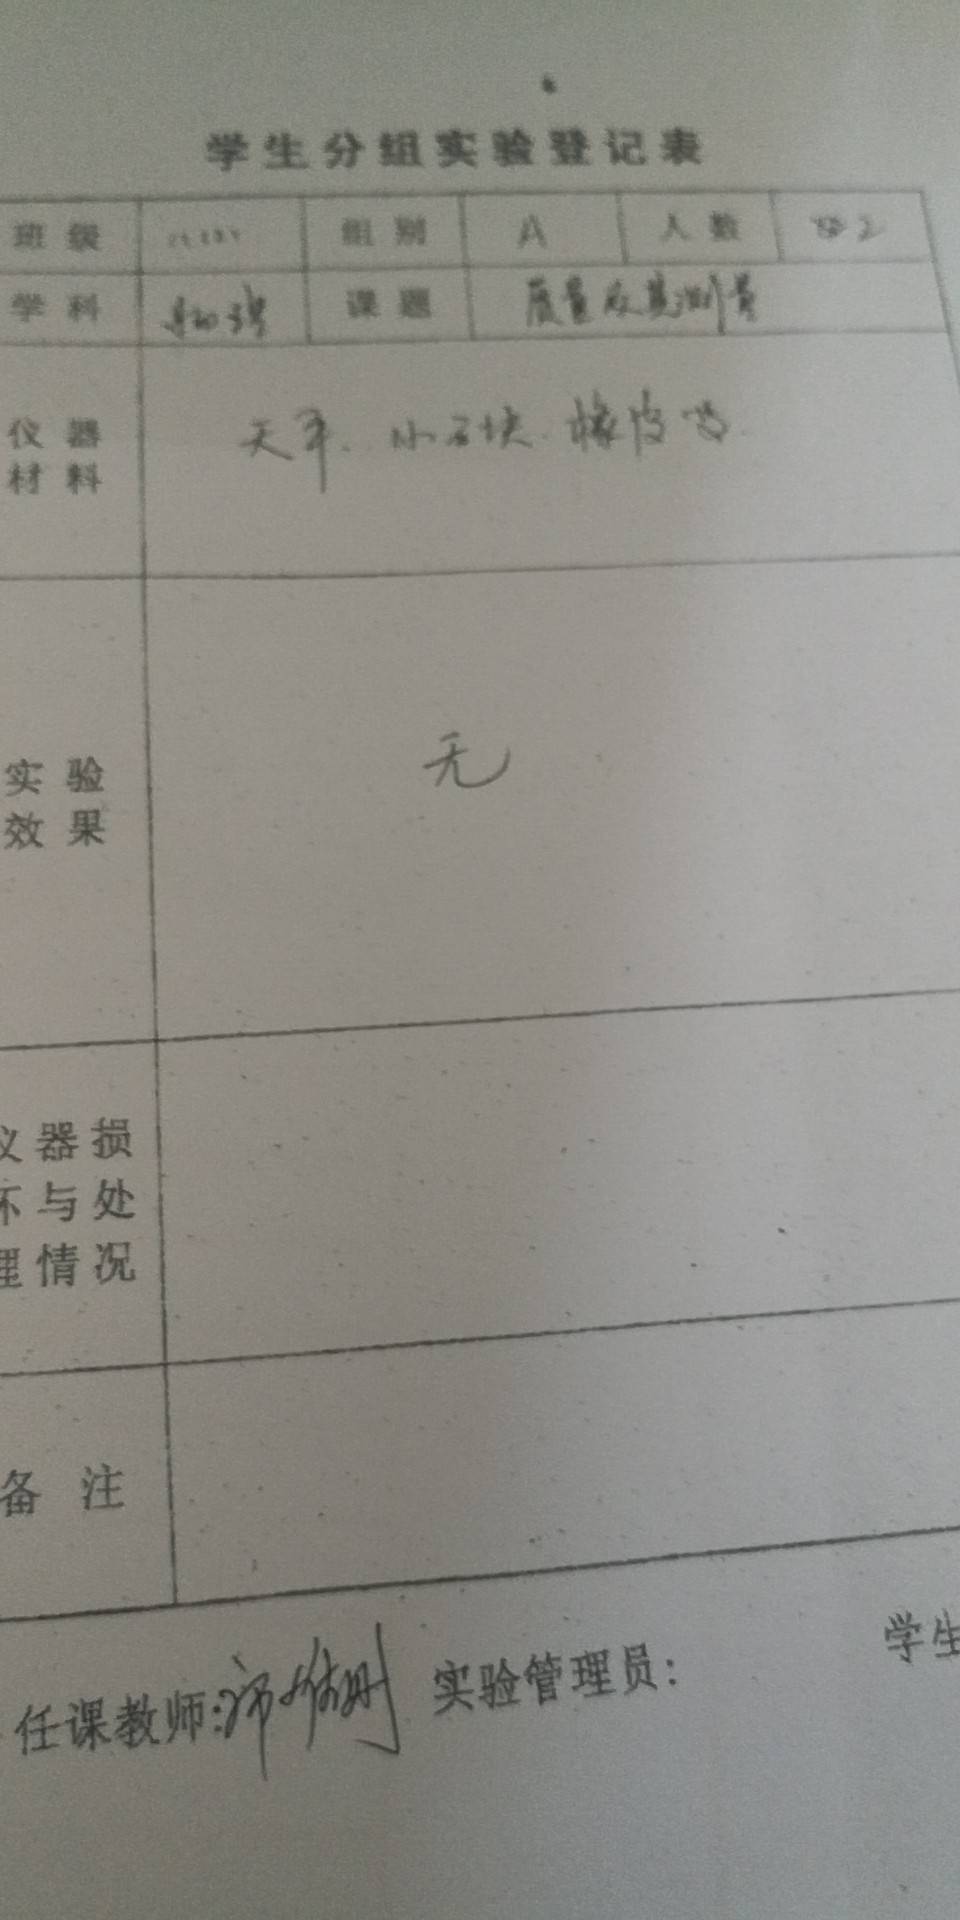 学生分组实验登记表
班级 组别 A 人数
学科 物理 课题 质量及其测量
仪器 天平、小石块、橡皮
材料
实验 无
效果
仪器损
坏与处
理情况
备注
任课教师: 实验管理员: 学生